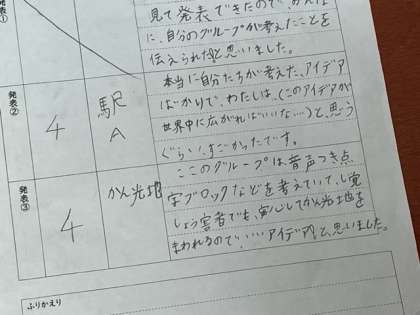 発表①
見て発表できたので、かんた
に、自分のグループが考えたことを
伝えられたと思いました。
発表②
4
駅
A
本当に自分たちが考えた、アイデア
ばかりで、わたしは、(このアイデアが
世界中に広がればいいな…)と思う
ぐらいすごかったです。
発表③
4
かん光地
ここのグループは、音声つき点
字ブロックなどを考えていて、し覚
しょう害者でも、安心してかん光地を
まわれるので、いいアイデアだと、思いました。
ふりかえり